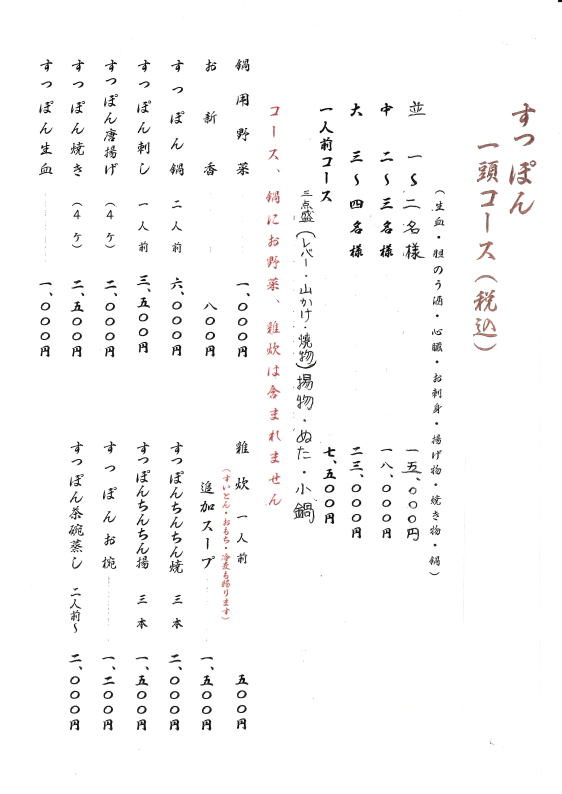 すっぽん
一頭コース（税込）
（生血・胆のう酒・心臓・お刺身・揚げ物・焼き物・鍋）
並　一～二名様　一五、〇〇〇円
中　二～三名様　一八、〇〇〇円
大　三～四名様　二三、〇〇〇円
一人前コース　七、五〇〇円
三点盛（レバー・山かけ・焼物）揚物・ぬた・小鍋
コース、鍋にお野菜、雑炊は含まれません
鍋用野菜　一、〇〇〇円
お新香　八〇〇円
すっぽん鍋　二人前　六、〇〇〇円
すっぽん刺し　一人前　三、五〇〇円
すっぽん唐揚げ（４ケ）　二、〇〇〇円
すっぽん焼き（４ケ）　二、五〇〇円
すっぽん生血　一、〇〇〇円
雑炊　一人前　五〇〇円
（すいとん・おもち・冷麦も賜ります）
追加スープ　一、五〇〇円
すっぽんちんちん焼　三本　二、〇〇〇円
すっぽんちんちん揚　三本　一、五〇〇円
すっぽんお椀　一、二〇〇円
すっぽん茶碗蒸し　二人前～　二、〇〇〇円